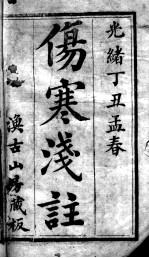 光緒丁丑孟春
傷寒淺註
漁古山房藏板